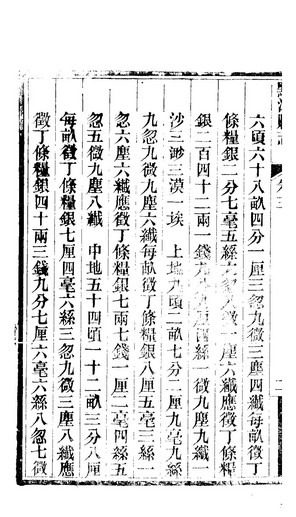 六頃六十八畝四分一厘三忽九微三塵四纖每畝徵丁
條糧銀二分七毫五絲六忽九微一塵六纖應徵丁條糧
銀二百四十二兩一錢九分九厘四絲一微九塵九纖一
沙三渺三漠一埃　上地九頃二畝七分二厘九毫九絲
九忽九微九塵六纖每畝徵丁條糧銀八厘五毫三絲一
忽六塵六纖應徵丁條糧銀七兩七錢一厘二毫四絲五
忽五微九塵八纖　中地五十四頃一十二畝三分八厘
每畝徵丁條糧銀七厘四毫六絲二忽九微三塵八纖應
徵丁條糧銀四十兩三錢九分七厘六毫六絲八忽七微